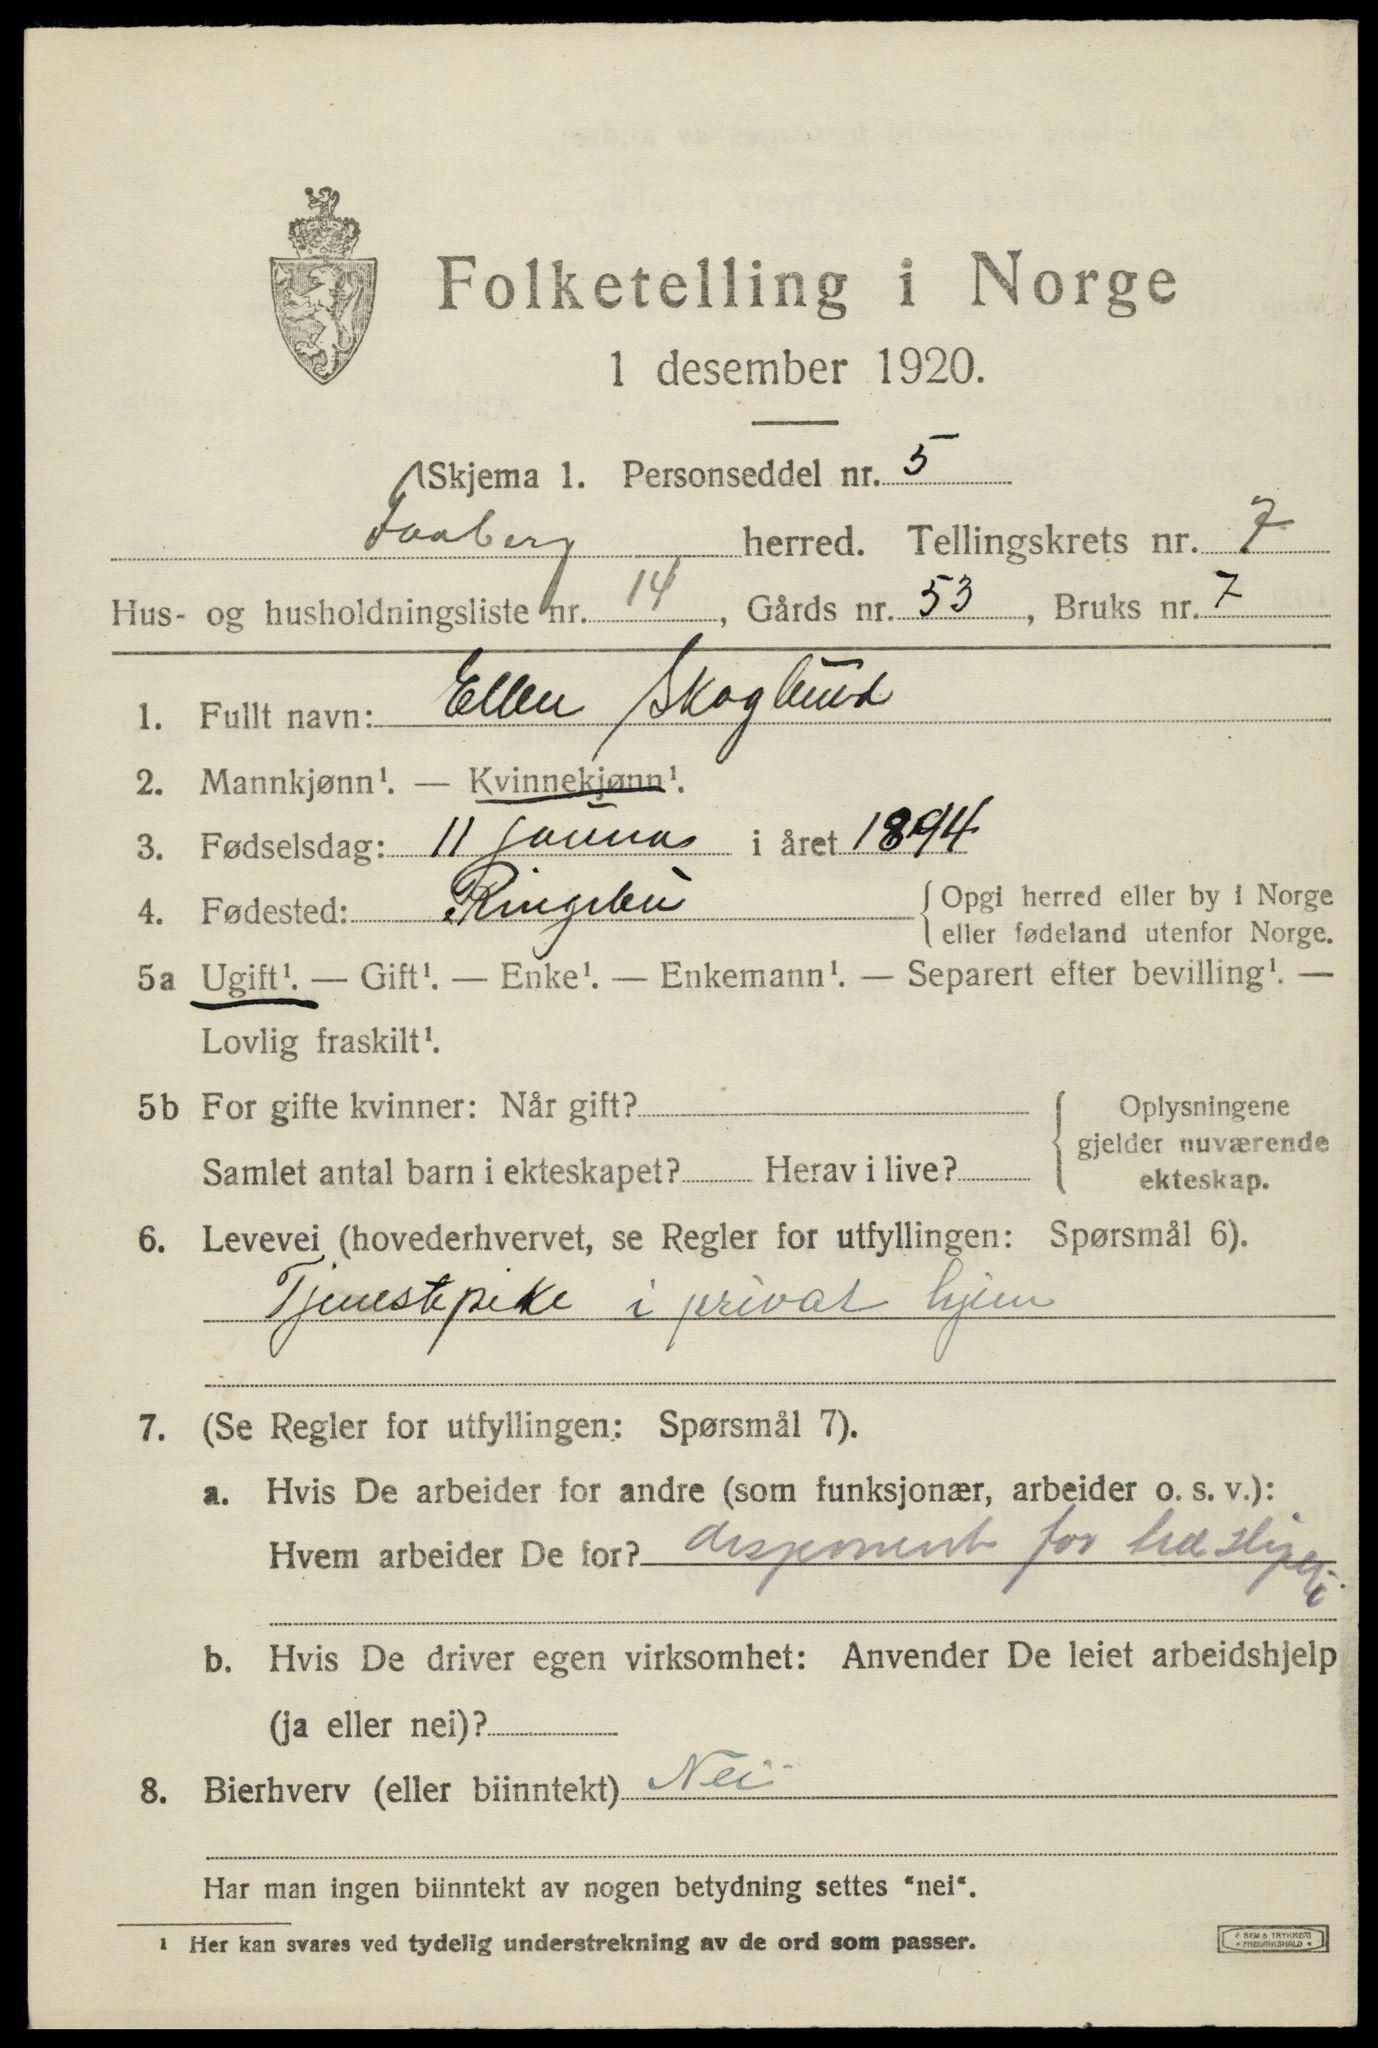 Folketelling i Norge
1 desember 1920.
Skjema 1. Personseddel nr. 5
Faaberg herred. Tellingskrets nr. 7
Hus- og husholdningsliste nr. 14, Gårds nr. 53, Bruks nr. 7
1. Fullt navn: Ellen Skoglund
2. Mannkjønn¹. — Kvinnekjønn¹.
3. Fødselsdag: 11 januar i året 1894
4. Fødested: Ringebu { Opgi herred eller by i Norge
eller fødeland utenfor Norge.
5a Ugift¹. — Gift¹. — Enke¹. — Enkemann¹. — Separert efter bevilling¹. —
Lovlig fraskilt¹.
5b For gifte kvinner: Når gift? { Oplysningene
gjelder nuværende
Samlet antal barn i ekteskapet? Herav i live? ekteskap.
6. Levevei (hovederhvervet, se Regler for utfyllingen: Spørsmål 6).
Tjenestepike i privat hjem
7. (Se Regler for utfyllingen: Spørsmål 7).
a. Hvis De arbeider for andre (som funksjonær, arbeider o. s. v.):
Hvem arbeider De for? disponent for træsliperi.
b. Hvis De driver egen virksomhet: Anvender De leiet arbeidshjelp
(ja eller nei)?
8. Bierhverv (eller biinntekt) Nei
Har man ingen biinntekt av nogen betydning settes "nei".
¹ Her kan svares ved tydelig understrekning av de ord som passer.
SEM & TRYKKERI
FREDRIKSHALD